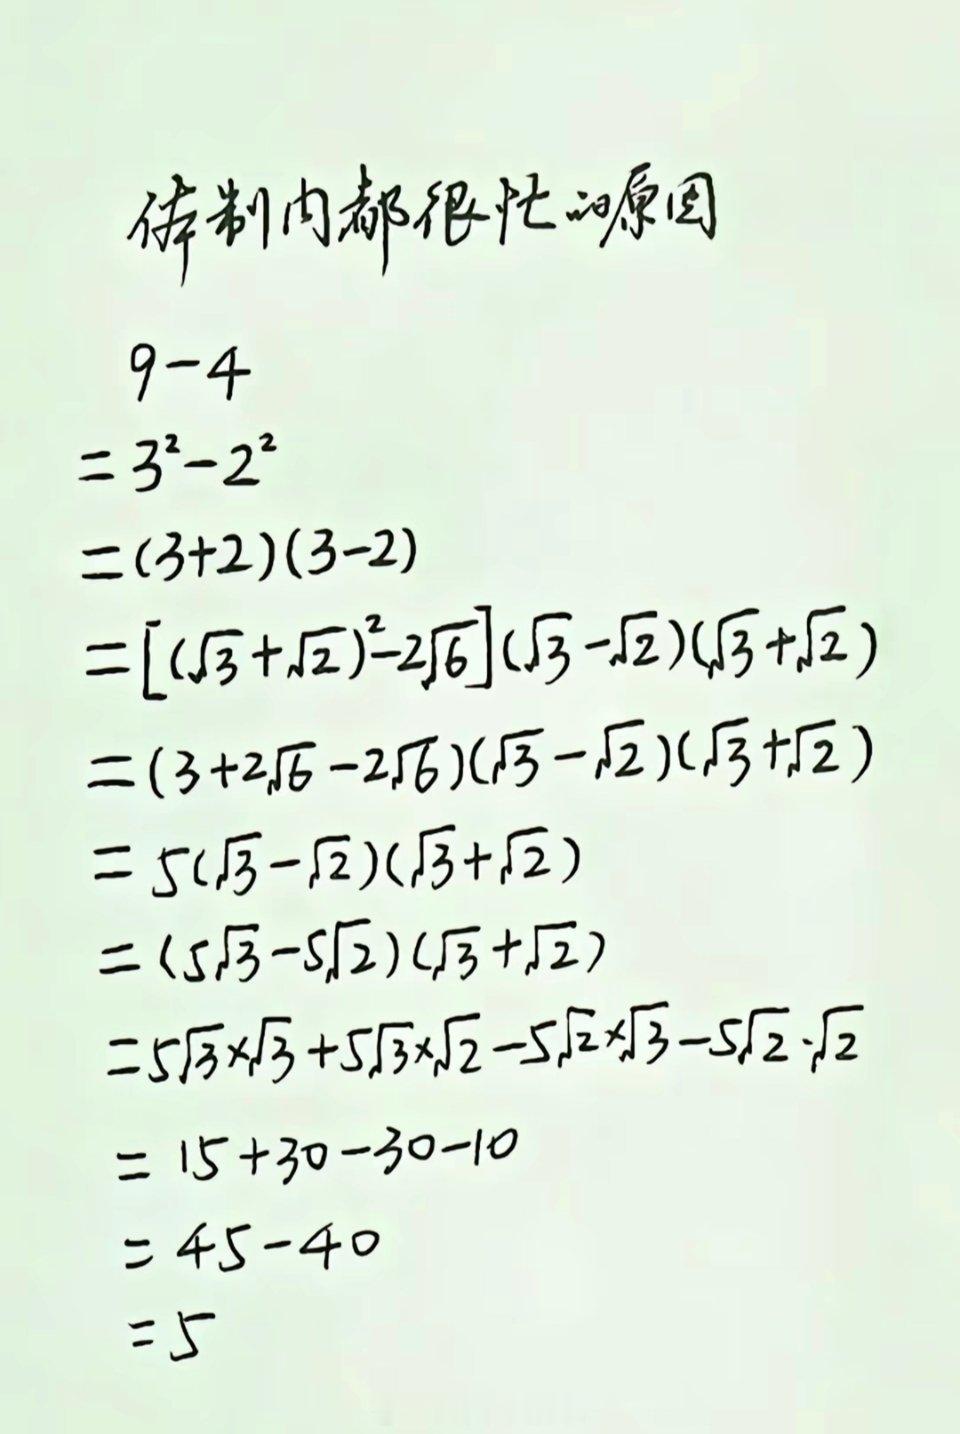 体制内都很忙的原因
9-4
=3²-2²
=(3+2)(3-2)
=[(√3+√2)²-2√6](√3-√2)(√3+√2)
=(3+2√6-2√6)(√3-√2)(√3+√2)
=5(√3-√2)(√3+√2)
=(5√3-5√2)(√3+√2)
=5√3×√3+5√3×√2-5√2×√3-5√2·√2
=15+30-30-10
=45-40
=5